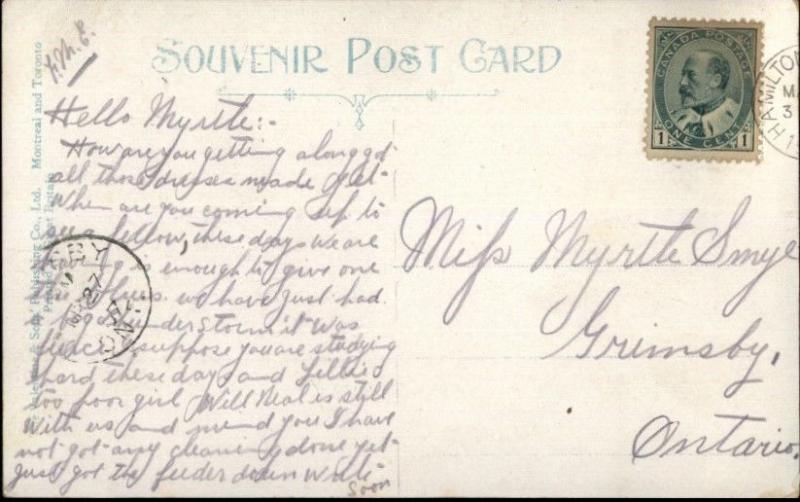 SOUVENIR POST CARD
Hello Myrtle:-
How are you getting along got
all those dresses made yet
When are you coming up to
see a fellow, these days we are
having is enough to give one
the blues. we have just had
a big thunder storm it was
fierce, suppose you are studying
hard these days and Lillie
too poor girl Will Neal is still
with us and mind you I have
not got any cleaning done yet
Just got the feeder down Write
Soon
CANADA POSTAGE
1 ONE CENT 1
HAMILTON
Miss Myrtle Smye
Grimsby,
Ontario.
Publishing Co., Ltd. Montreal and Toronto